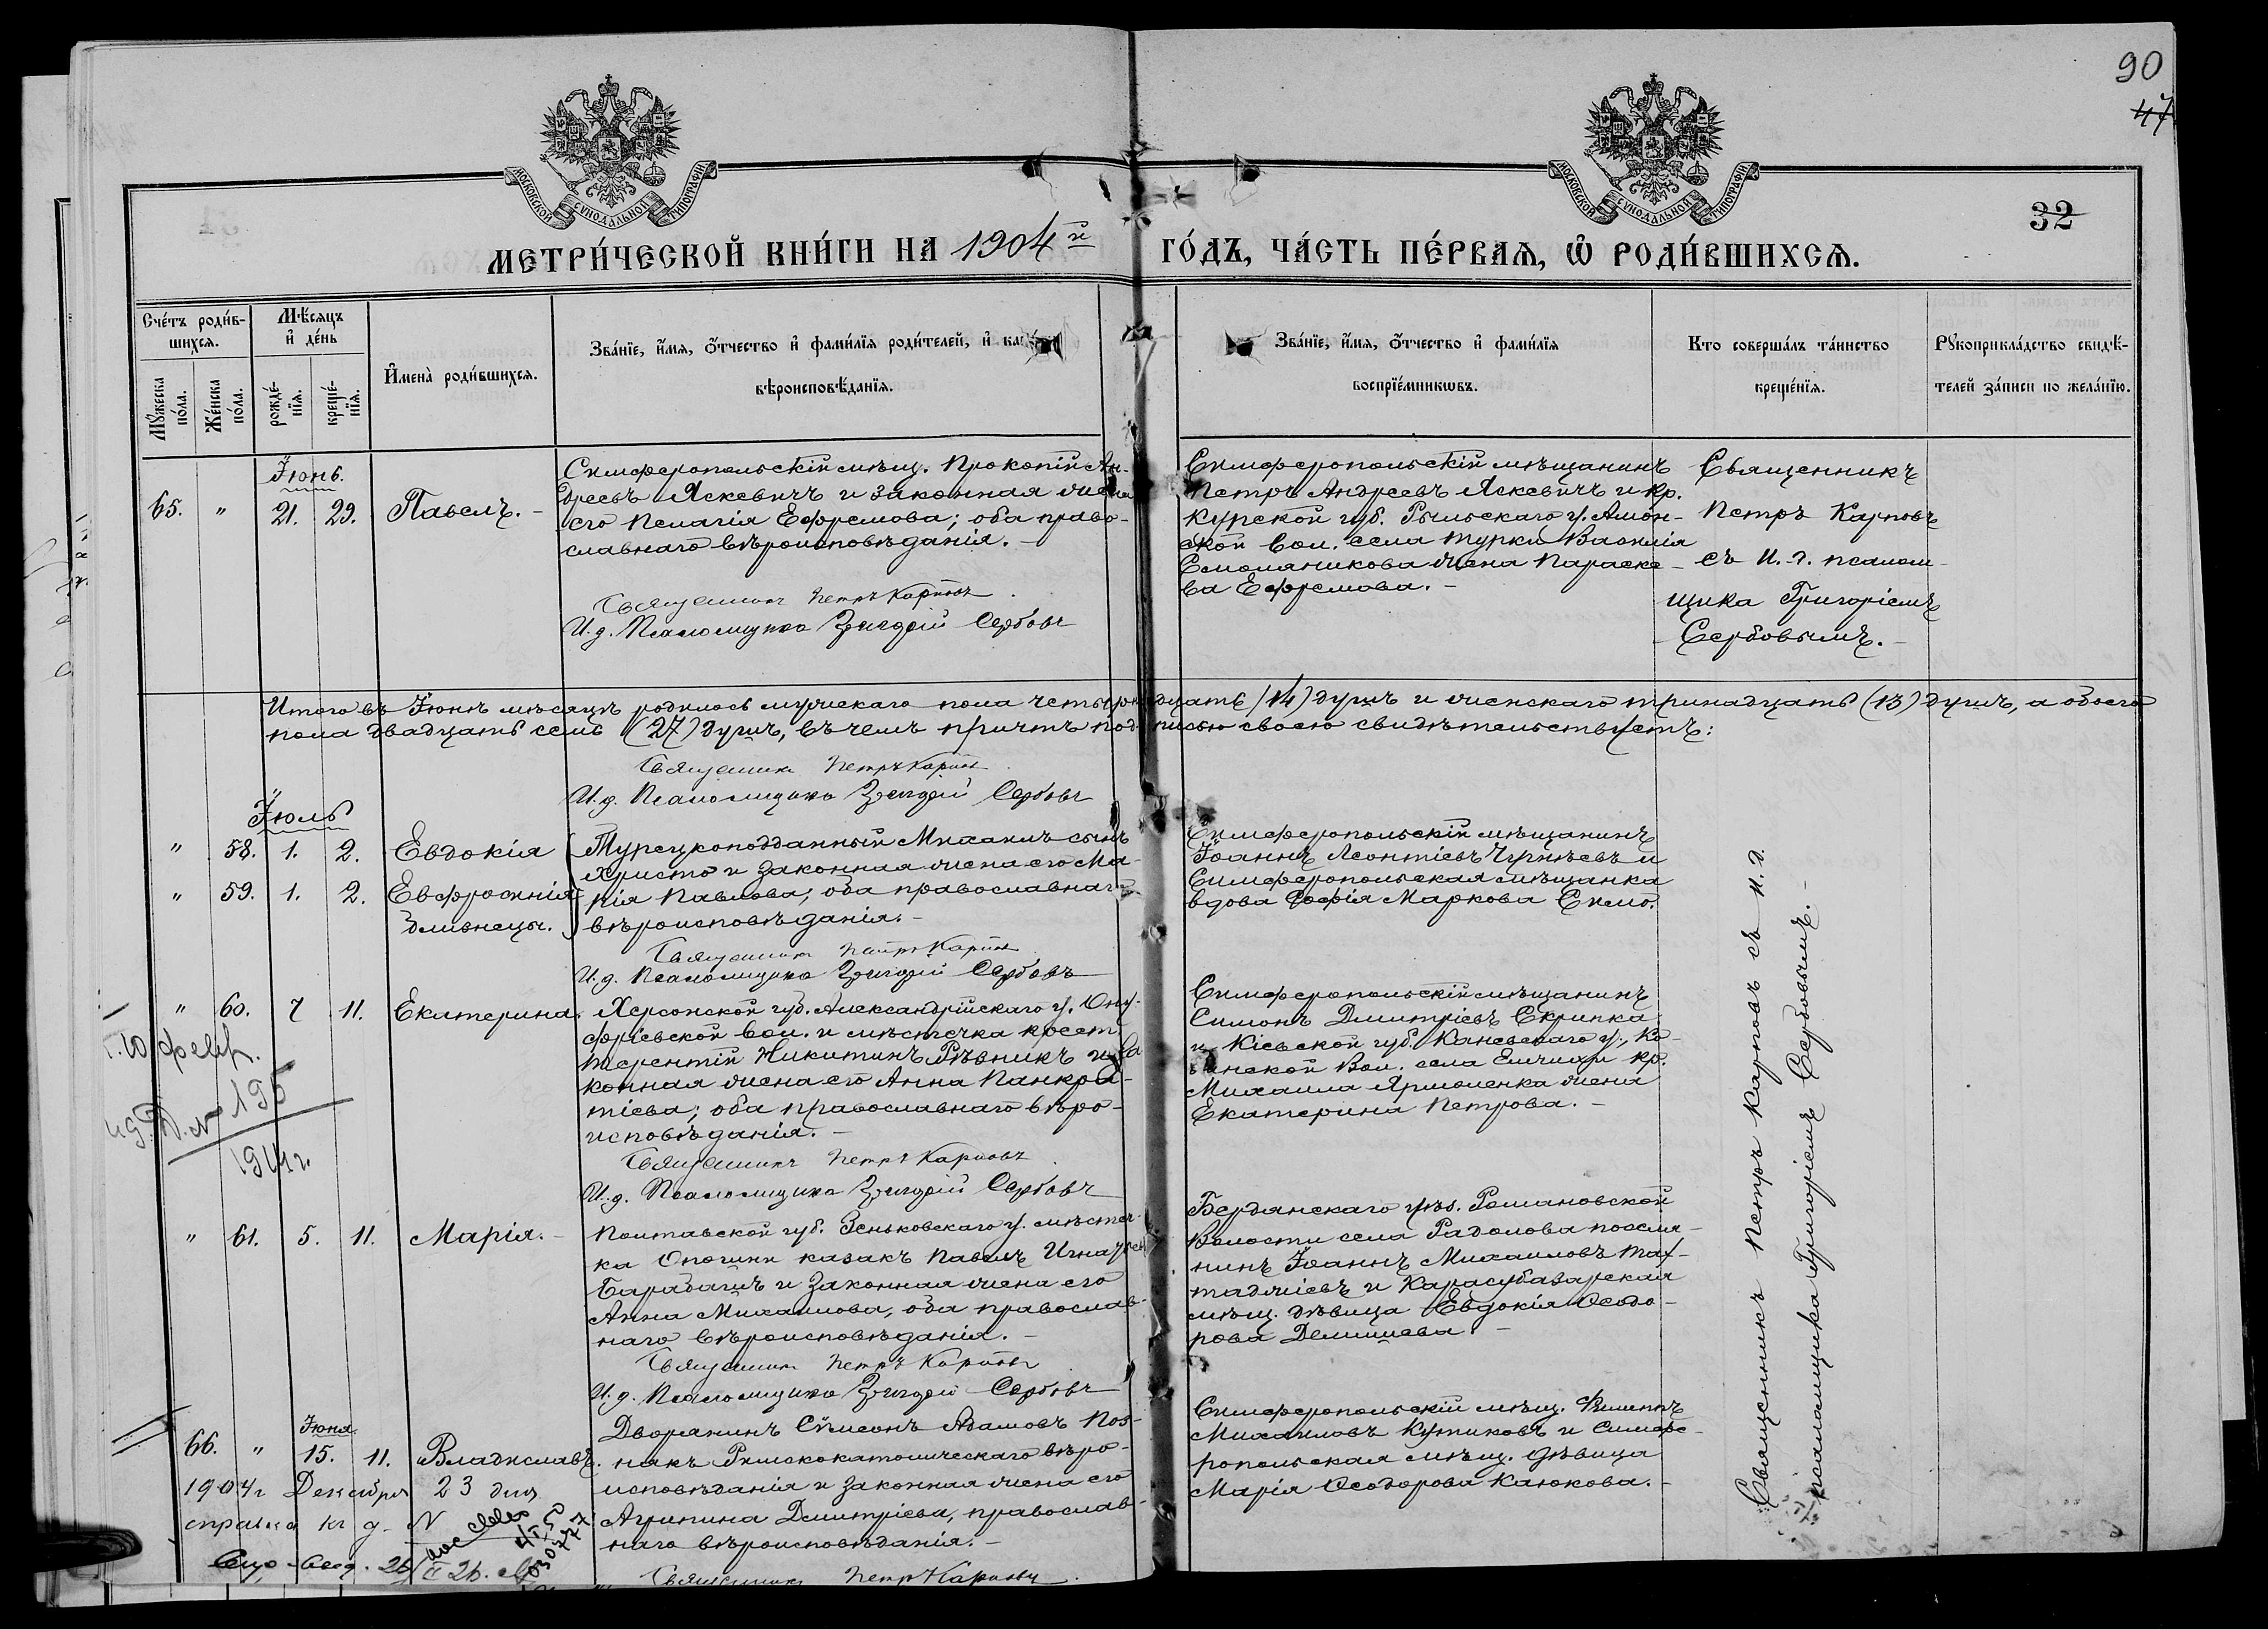 90
47
МОСКОВСКОЙ СѴНОДАЛЬНОЙ ТИПОГРАФІИ
МОСКОВСКОЙ СѴНОДАЛЬНОЙ ТИПОГРАФІИ
32
МЕТРИ́ЧЕСКОЙ КНИ́ГИ НА 1904й ГО́ДЪ, ЧА́СТЬ ПЕ́РВАЯ, Ѽ РОДИ́ВШИХСЯ.
Сче́тъ роди́в-
шихся.
Мѣ́сяцъ
и҆ де́нь
Мꙋ́жеска
по́ла.
Же́нска
по́ла.
рожде́-
нїя.
креще́-
нїя.
И҆мена̀ роди́вшихся.
Зва́нїе, и҆́мя, ѻ҆́тчество и҆ фами́лїя роди́телей, и҆
вѣроисповѣ́данїя.
Зва́нїе, и҆́мя, ѻ҆́тчество и҆ фами́лїя
воспрїе́мникѡвъ.
Кто соверша́лъ та́инство
креще́нїя.
Рꙋкоприкла́дство свидѣ́-
телей за́писи по жела́нїю.
Іюнь.
65. " 21. 29. Павелъ. -
Симферопольскій мѣщ. Прокопій Ан-
дреевъ Яскевичъ и законная жена
его Пелагія Ефремова; оба право-
славнаго вѣроисповѣданія. -
Священникъ Петръ Карповъ
И. д. Псаломщика Григорій Сербовъ
Симферопольскій мѣщанинъ
Петръ Андреевъ Яскевичъ и кр.
Курской губ. Рыльскаго у. Амон-
ской вол. села Турки Василія
Смолянникова жена Параске-
ва Ефремова. -
Священникъ
Петръ Карповъ
съ И. д. псалом-
щика Григоріемъ
Сербовымъ. -
Итого въ Іюнѣ мѣсяцѣ родилось мужескаго пола четырнадцать (14) душъ и женскаго тринадцать (13) душъ, а обоего
пола двадцать семь (27) душъ, въ чемъ причтъ подписью своею свидѣтельствуетъ:
Священникъ Петръ Карповъ
И. д. Псаломщика Григорій Сербовъ
Іюль
" 58. 1. 2. Евдокія
" 59. 1. 2. Евфросинія
близнецы.
Турецкоподданный Михаилъ сынъ
Христо и законная жена его Ма-
рія Павлова; оба православнаго
вѣроисповѣданія. -
Священникъ Петръ Карповъ
И. д. Псаломщика Григорій Сербовъ
Симферопольскій мѣщанинъ
Іоаннъ Леонтіевъ и
Симферопольская мѣщанка
вдова Софія Маркова
" 60. 7 11. Екатерина.
Херсонской губ. Александрійскаго у. Ону-
фріевской вол. и мѣстечка крест.
Терентій Никитинъ Рѣзникъ и за
конная жена его Анна Панкра-
тіева; оба православнаго вѣро-
исповѣданія. -
Священникъ Петръ Карповъ
И. д. Псаломщика Григорій Сербовъ
Симферопольскій мѣщанинъ
Симонъ Димитріевъ Скрипка
и Кіевской губ. Каневскаго у., Ко-
занской Вол. села Емчихи кр.
Михаила Ярмоленка жена
Екатерина Петрова. -
февр.
Д. № 195
1911 г.
" 61. 5. 11. Марія. -
Полтавской губ. Зеньковскаго у. мѣстеч-
ка Опошни казакъ Павелъ Игнатьевъ
Барабашъ и законная жена его
Анна Михаилова, оба православ-
наго вѣроисповѣданія. -
Священникъ Петръ Карповъ
И. д. Псаломщика Григорій Сербовъ
Бердянскаго уѣз. Романовской
Волости села Радолова поселя-
нинъ Іоаннъ Михаиловъ
и Карасубазарская
мѣщ. дѣвица Евдокія Ѳеодо-
рова -
Іюня
66. " 15. 11. Владиславъ.
Дворянинъ Сѵмеонъ Адамовъ Поз-
някъ Римскокатолическаго вѣро-
исповѣданія и законная жена его
Агрипина Димитріева, православ-
наго вѣроисповѣданія. -
Священникъ Петръ Карповъ
Симферопольскій мѣщ. Филиппъ
Михаиловъ Кутиковъ и Симфе-
ропольская мѣщ. дѣвица
Марія Ѳеодорова Каюкова. -
1904 г Декабря 23 дня
справка к. д. №
Священникъ Петръ Карповъ съ И. д.
псаломщика Григоріемъ Сербовымъ. -